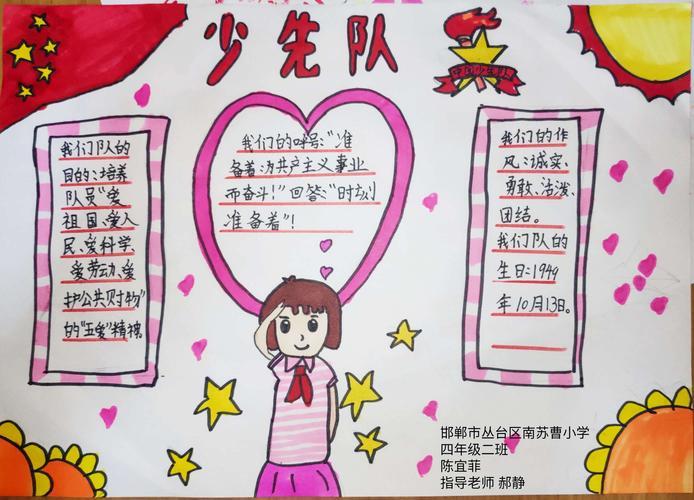 少先队
中国少先队
我们队的
目的:培养
队员“爱
祖国、爱人
民、爱科学、
爱劳动、爱
护公共财物”
的“五爱”精神。
我们的呼号:“准
备着:为共产主义事业
而奋斗!”回答:“时刻
准备着”!
我们的作
风:诚实、
勇敢、活泼、
团结。
我们队的
生日:1949
年10月13日。
邯郸市丛台区南苏曹小学
四年级二班
陈宜菲
指导老师 郝静